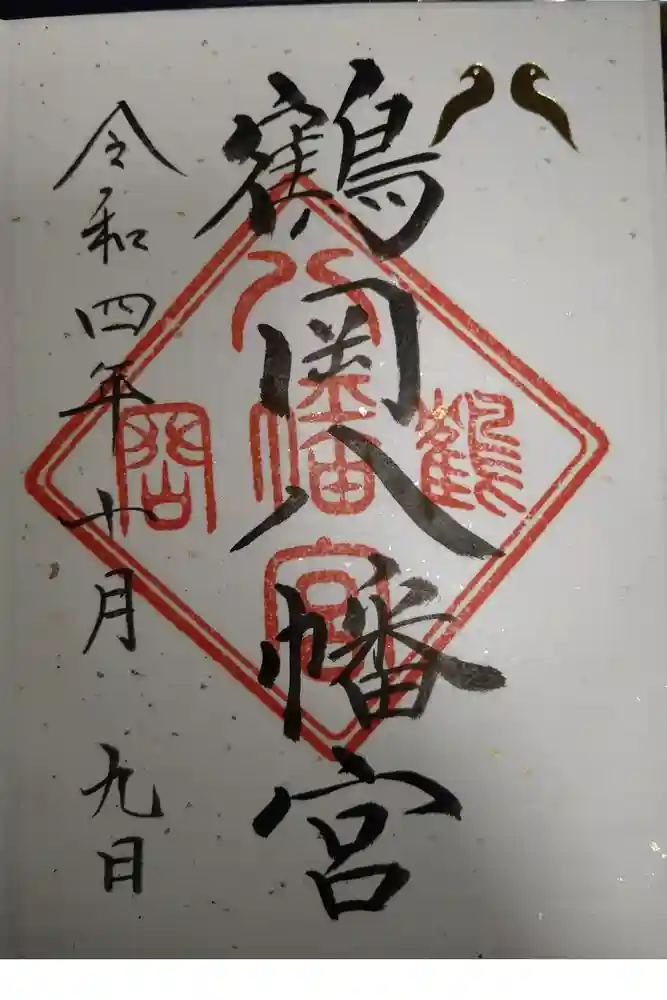 鶴岡八幡宮
令和四年十月九日
鶴
八
幡
宮
岡